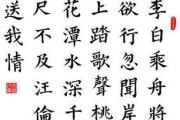 李白乘舟將
欲行忽聞岸
上踏歌聲桃
花潭水深千
尺不及汪倫
送我情